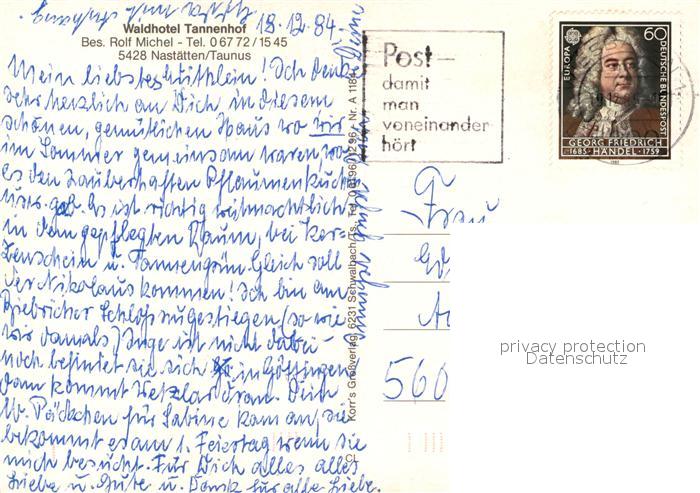 18.12.84.
Waldhotel Tannenhof
Bes. Rolf Michel - Tel. 0 67 72 / 15 45
5428 Nastätten/Taunus
Mein liebstes! Ich denke
sehr herzlich an Dich in diesem
schönen, gemütlichen Haus wo wir
im Sommer gemeinsam waren, wo
es den zauberhaften Pflaumenkuchen
gab. Es ist richtig weihnachtlich
in dem gepflegten Raum, bei Ker-
zenschein u. Tannengrün. Gleich soll
der Nikolaus kommen! Ich bin am
Biebricher Schloß zugestiegen (so wie
wir damals) Inge ist nicht dabei -
noch befindet sie sich in Göttingen
dann kommt Wetzlar dran. Dein
W. Päckchen für Sabine kam an, sie
bekommt es am 1. Feiertag wenn sie
mich besucht. Für Dich alles alles
Liebe u. Gute u. Dank für alle Liebe.
Korr's Großverlag, 6231 Schwalbach/Ts. Tel. Nr. A
CL
Post –
damit
man
voneinander
hört
EUROPA
60
DEUTSCHE BUNDESPOST
GEORG FRIEDRICH
1685 HÄNDEL 1759
Frau
560
privacy protection
Datenschutz